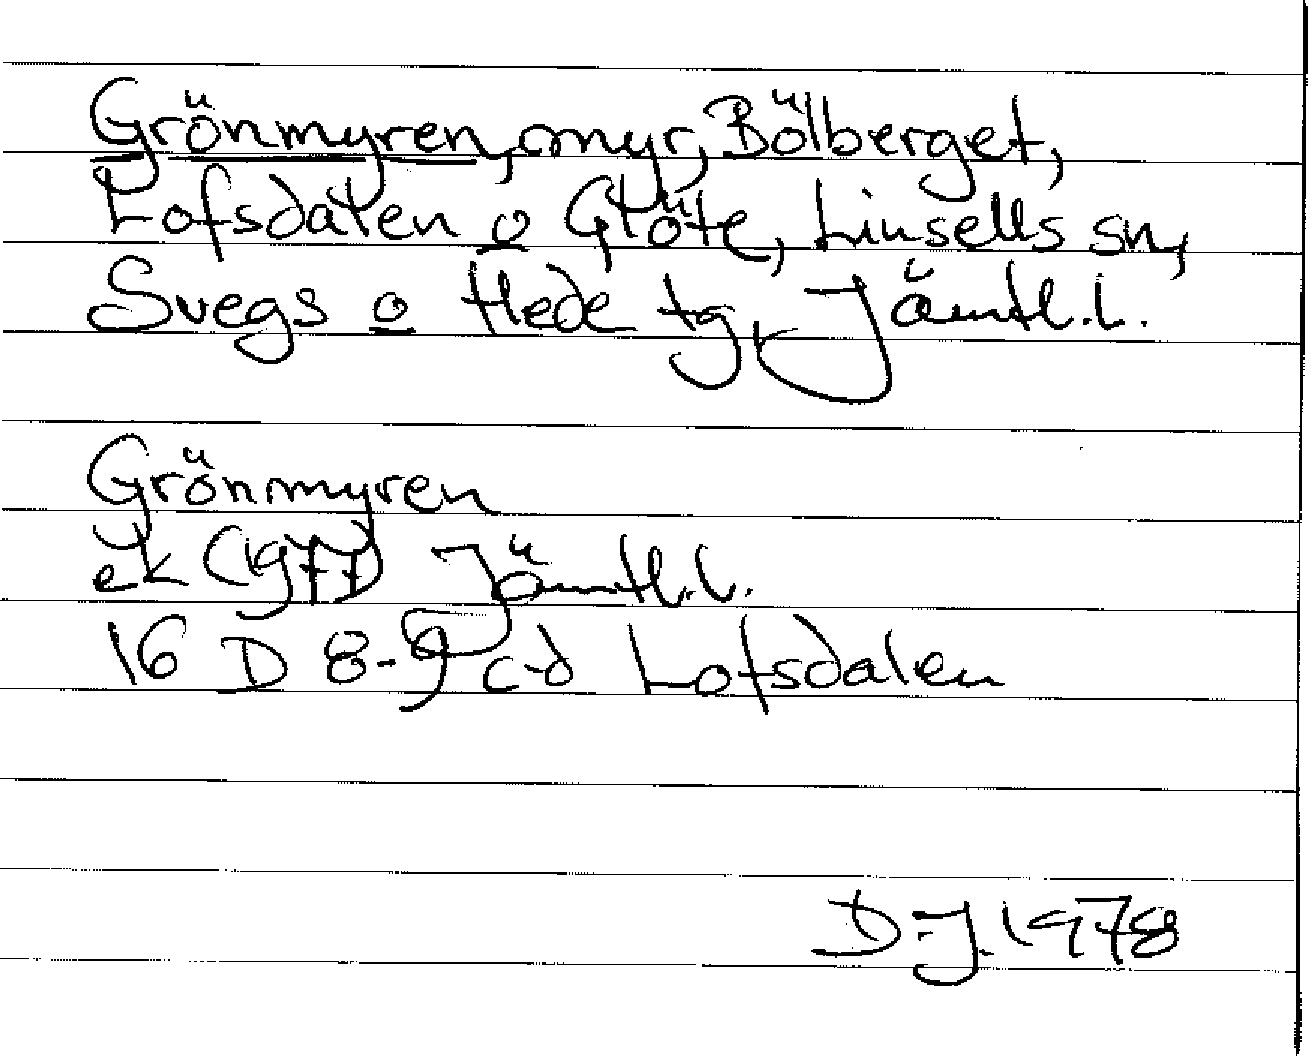 Grönmyren, myr, Bölberget,
Lofsdalen o Glöte, Linsells sn,
Svegs o Hede tg, Jämtl.l.
Grönmyren
ek (1977) Jämtl.l.
16 D 8-9 c-d Lofsdalen
D.J. 1978